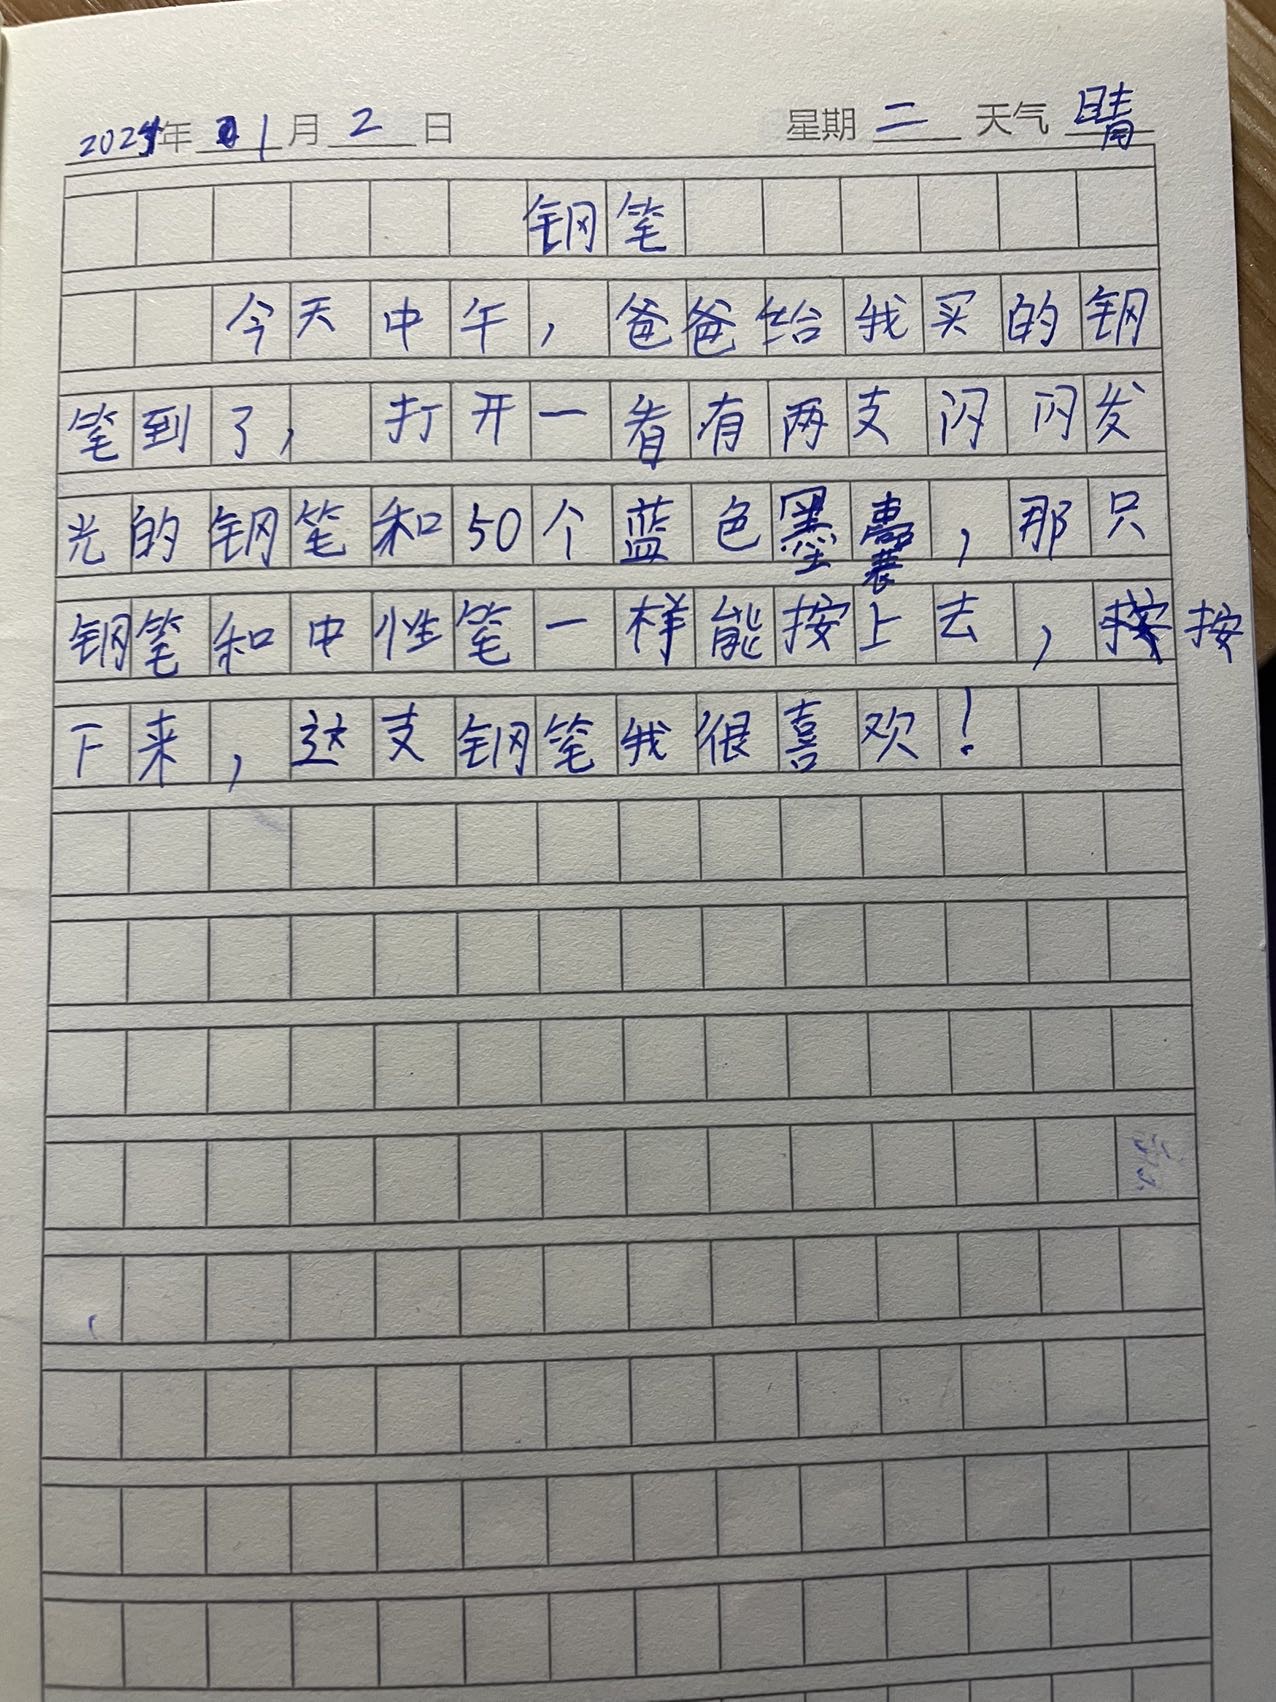 2024年 1月 2日 星期二 天气 晴
钢笔
今天中午，爸爸给我买的钢
笔到了，打开一看有两支闪闪发
光的钢笔和50个蓝色墨囊，那只
钢笔和中性笔一样能按上去，按
下来，这支钢笔我很喜欢！